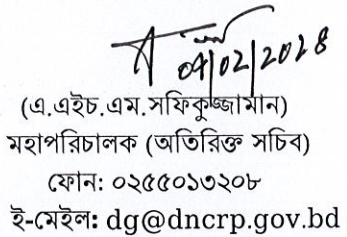 ০৫/০২/২০২৪
(এ.এইচ.এম.সফিকুজ্জামান)
মহাপরিচালক (অতিরিক্ত সচিব)
ফোন: ০২৫৫০১৩২০৮
ই-মেইল: dg@dncrp.gov.bd